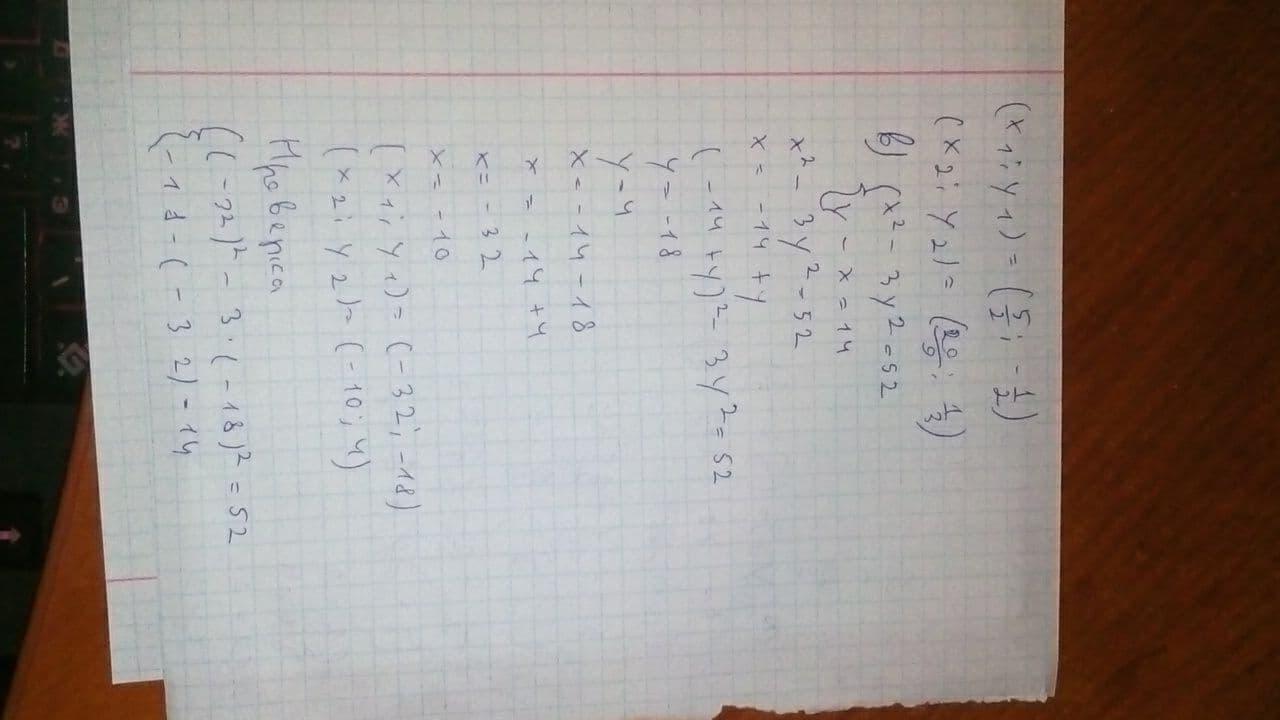 (x1; y1) = (5/2; -1/2)
(x2; y2) = (20/9; 1/3)
в) { x² - 3y² = 52
{ y - x = 14
x² - 3y² = 52
x = -14 + y
( -14 + y)² - 3y² = 52
y = -18
y = 4
x = -14 - 18
x = -14 + 4
x = -32
x = -10
(x1; y1) = (-32; -18)
(x2; y2) = (-10; 4)
Проверка
{ (-32)² - 3·(-18)² = 52
{ -18 - (-32) = 14